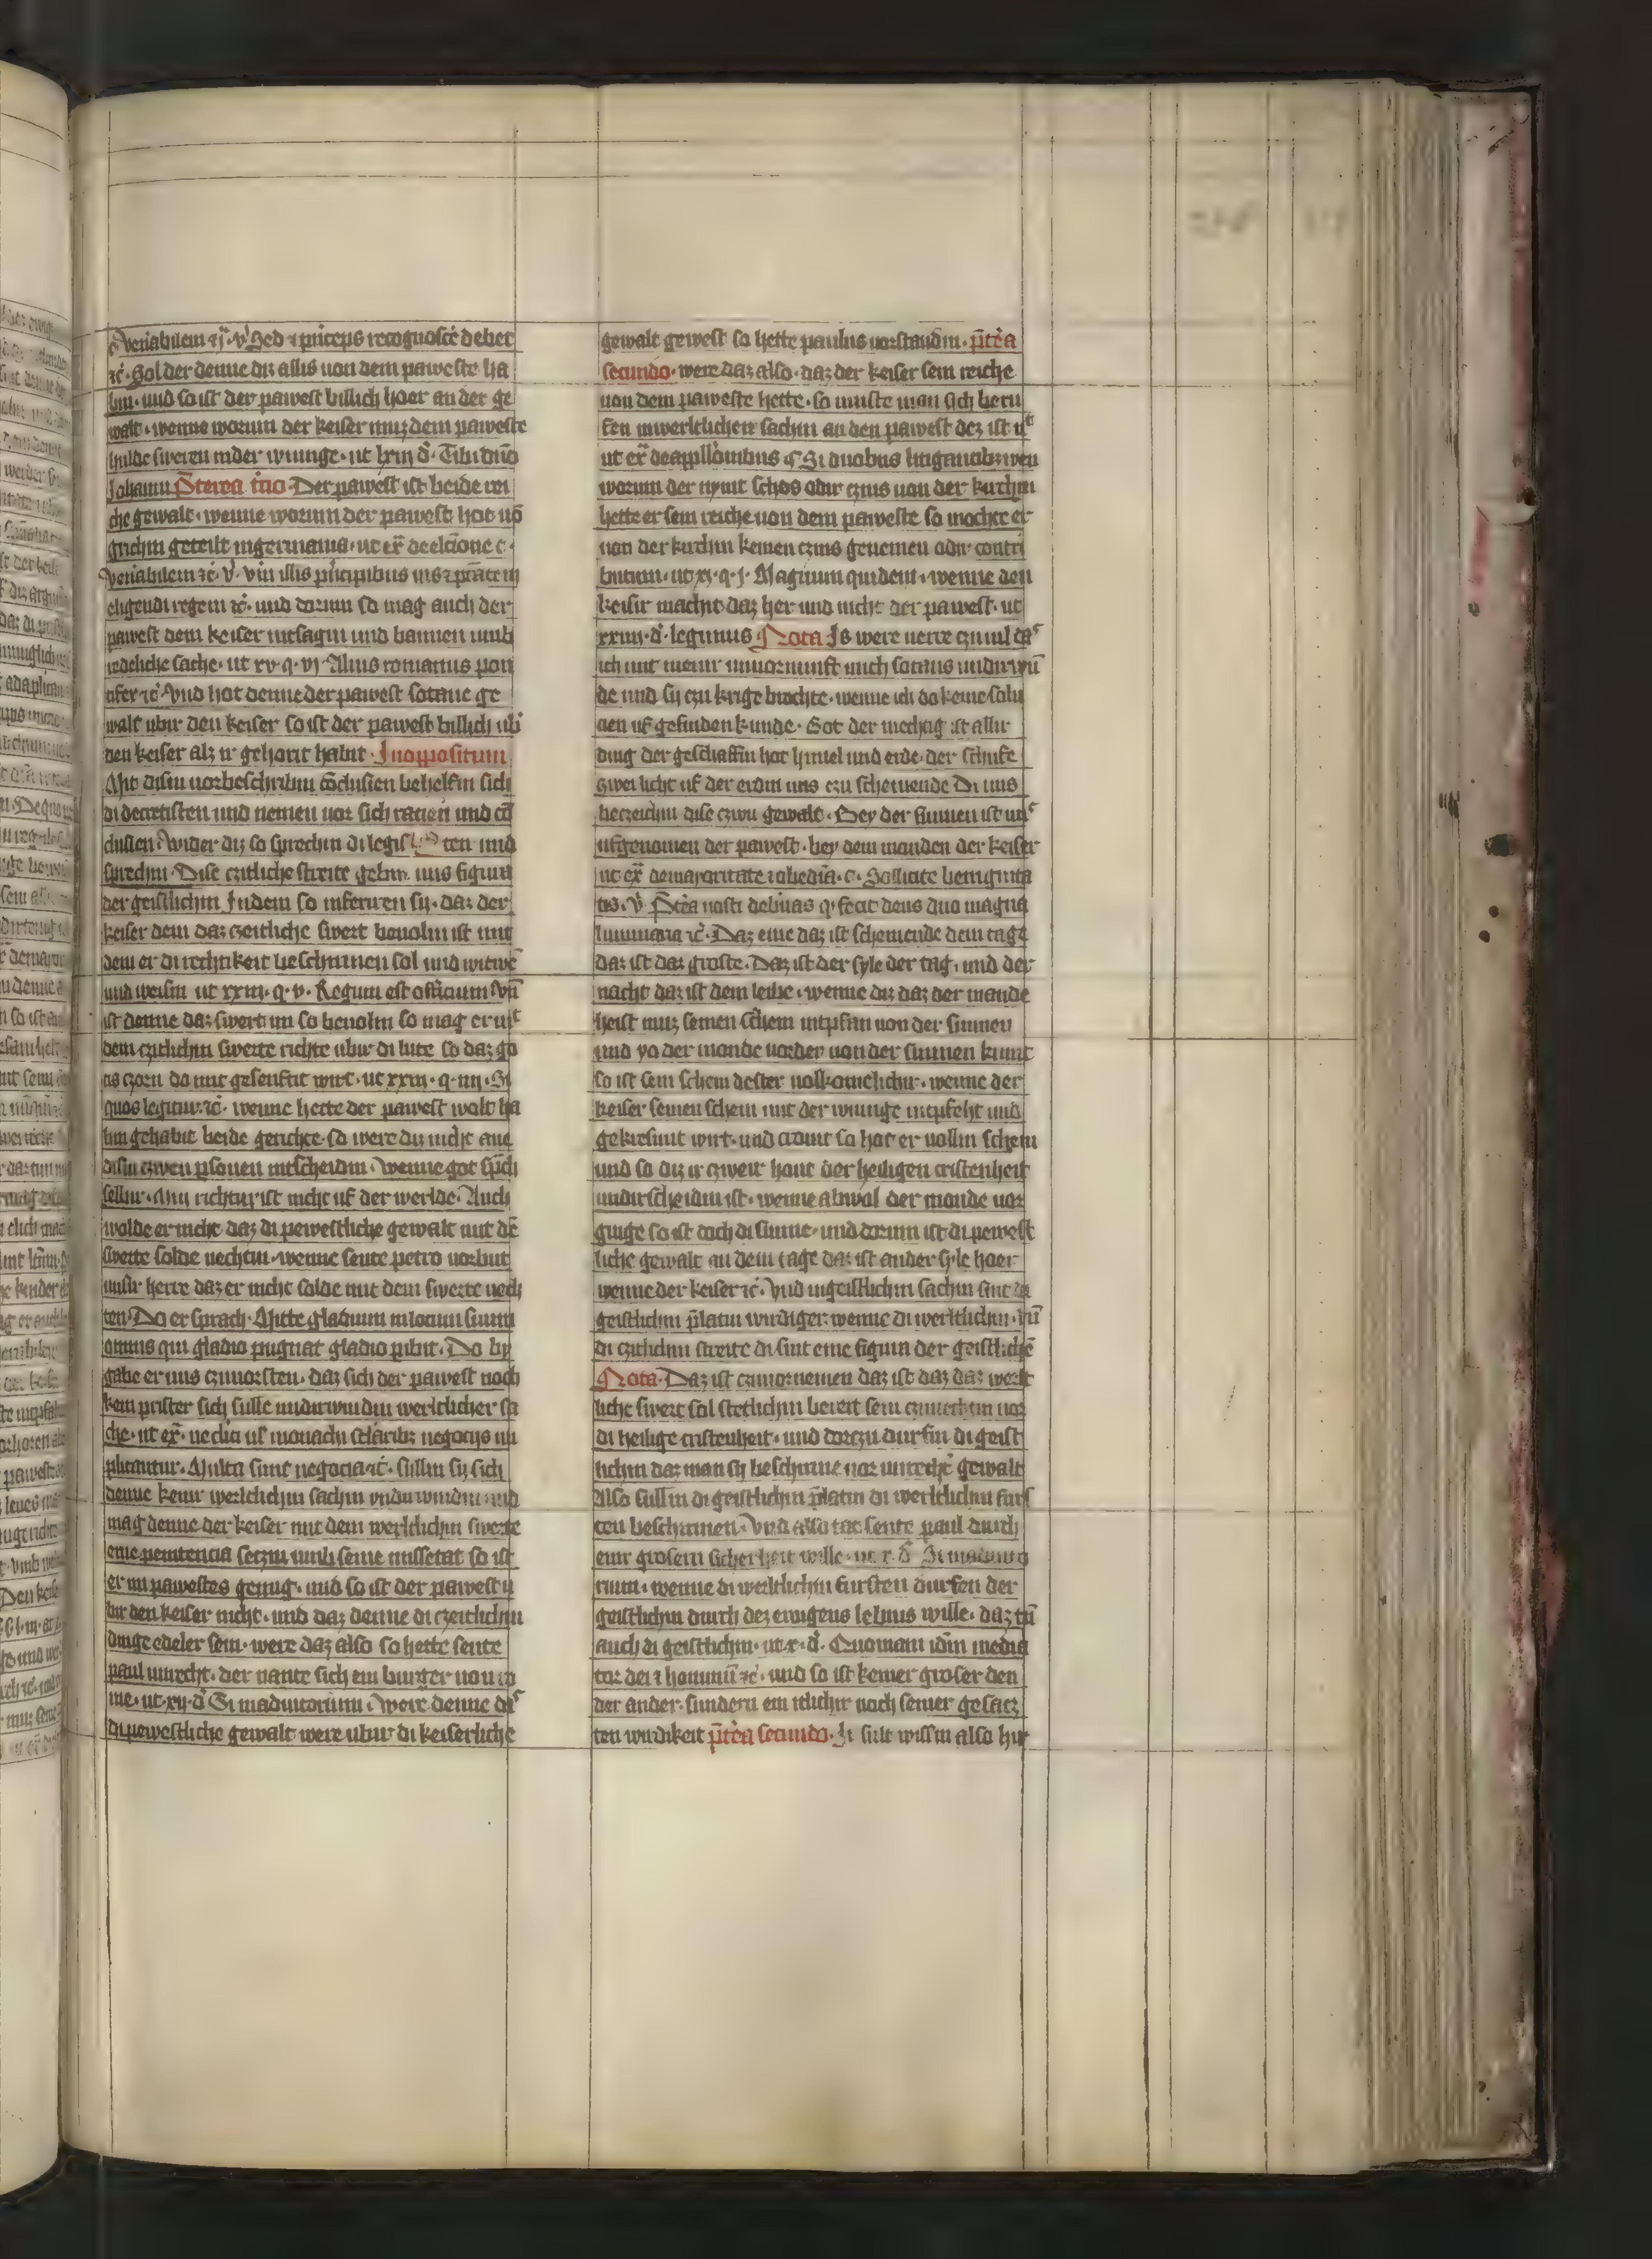 c venĩabilem ⁊ ij · v̾ Sed ⁊ princeps recognosce᷑ debet
⁊c̃ · Sol der denne diz allis uon dem paweste ha
bin · und so ist der pawest billich hoer an der ge
walt · wenne worum der keiser muz dem paweste
hulde sweren in der wiunge · ut lxiij d̾ · Tibi dño
Johanni P̃terea tercio · Der pawest ist beide rei
che gewalt · wenne worum der pawest hot uõ
grichin geteilt in germania · ut ex̃ de elc̃ione c ·
venĩabilem ⁊c̃ · v̾ · vñ illis pñcipibus ius ⁊ p̃tatem
eligendi regem ⁊c̃ · und dorum so mag auch der
pawest dem keiser intsagin und bannen umb
redeliche sache · ut xv · q · vj · Alius romanus pon
tifex ⁊c̃ Vnd hot denne der pawest sotane ge
walt ubir den keiser so ist der pawest billich ub̾
den keiser alz ir gehorit habit · In oppositum
Mit disin uorbeschribin c̃clusien behelfin sich
di decretisten und nemen uor sich racien und cõ
clusien · Wider diz so sprechin di legisten und
sprechin · Dise czitliche streite gebin uns figuri
der geistlichin Indem so inferiren sij · daz der
keiser dem daz czeitliche swert beuolin ist mit
dem er di rechtikeit beschirmen sol und witwẽ
und weisin ut xxiij · q · v · Regum est officium Vñ
ist denne daz swert im so beuolin so mag er mit
dem czitlichin swerte richte ubir di lute so daz go
tis czorn do mit gesenftit wirt · ut xxiij · q · iiij · Si
quos legitur ⁊c̃ · wenne hette der pawest wolt ha
bin gehabit beide gerichte · so were diz nicht an
disin czwen p̱sonen intscheidin · Wenne got sp̃ch
selbir · Myn richtur ist nicht uf der werlde · Auch
wolde er nicht daz di pewestliche gewalt mit dẽ
swerte solde uechtin · wenne sente petro uorbut
unsir herre daz er nicht solde mit dem swerte uech
ten · Do er sprach · Mitte gladium in locum suum
omnis qui gladio pugnat gladio p̱ibit · Do by
gabe er uns czuuorsten · daz sich der pawest noch
kein prister sich sulle undirwindin werltlicher sa
che · ut ex̃ · ne clici ul̾ monachi sc̃laribꝫ negocijs im
plicantur · Multa sunt negocia ⁊c̃ · sullin sij sich
denne keinir werltlichin sachin undirwindin und
mag denne der keiser mit dem werltlichin swerte
eine penitencia setzin umb seine missetat so ist
er im pawestes genug · und so ist der pawest u
bir den keiser nicht · und daz denne di czeitlichin
dinge edeler sein · were daz also so hette sente
paul unrecht · der nante sich ein burger uon ro
me · ut xij · d̾ Si in adiutorium · Were denne daz
di pewestliche gewalt were ubir di keiserliche
gewalt gewest so hette paulus uorstandin · p̃tẽa
secundo · were daz also · daz der keiser sein reiche
uon dem paweste hette · so muste man sich beru
fen in werltlichen sachin an den pawest dez ist nicht
ut ex̃ de appll̾onibus c̾ Si duobus litigantibꝫ wen
worum der nymt schos odir czins uon der kirchin
hette er sein reiche uon dem paweste so mochte er
uon der kirchin keinen czins genemen odir contri
bucium · ut xj · q · j · Magnum quidem · wenne den
keisir machit daz her und nicht der pawest · ut
xxiij · d̾ · legimus · Nota Is were uerre czu uil daz
ich mit meinir unuornunft mich sotanis undirwũ
de und sij czu krige brochte · wenne ich do keine solu
cien uf gefinden kunde · Got der mechtig ist allir
ding der geschaffin hot himel und erde · der schufe
czwei licht uf der erdin uns czu scheinende Di uns
beczeichin dise czwu gewalt · Bey der sunnen ist uns
ufgenomen der pawest · bey dem manden der keiser
ut ex̃ de maioritate ⁊ obediã · c · Sollicite benignita
tis · v̾ · P̃tẽa nosti debuas q̾ fecit deus duo magna
luminaria ⁊c̃ · Daz eine daz ist scheinende dem tage
daz ist daz groste · Daz ist der syle der tag · und der
nacht daz ist dem leibe · wenne diz daz der mande
heist muz seinen schein intpfan uon der sunnen
und yo der monde uerder uon der sunnen kumt
so ist sein schein dester uolkomelichir · wenne der
keiser seinen schein mit der wiunge intpfeht und
gekresimit wirt · und domit so hot er uollin schein
und so diz ir czweir hout der heiligen cristenheit
undirscheidin ist · wenne alwol der monde uor
ginge so ist doch di sunne · und dorum ist di pewest
liche gewalt an dem tage daz ist an der syle hoer
wenne der keiser ⁊c̃ · Vnd in geistlichin sachin sint di
geistlichin p̃latin wirdiger wenne di werltlichin · Vñ
di czitlichin streite di sint eine figura der geistlichẽ
Nota · Daz ist czuuornemen daz ist daz daz werlt
liche swert sol stetlichin bereit sein czuuechtin uor
di heilige cristenheit · und dorczu durfin di geist
lichin daz man sij beschirme uor unrecht̾ gewalt
Also sullin di geistlichin p̃latin di werltlichin furs
ten beschirmen · Vnd also tat sente paul durch
einir grosern sicherheit wille · ut x · d̾ Si in adiuto
rium · wenne di werltlichin fursten durfen der
geistlichin durch dez ewigens lebins wille · daz tũ
auch di geistlichin · ut x · d̾ · Quoniam idem media
tor dei ⁊ hominũ ⁊c̃ · und so ist keiner groser den
der ander · sundern ein itlichir noch seiner gesacz
ten wirdikeit p̃tẽa secundo · Ir sult wissin also hir